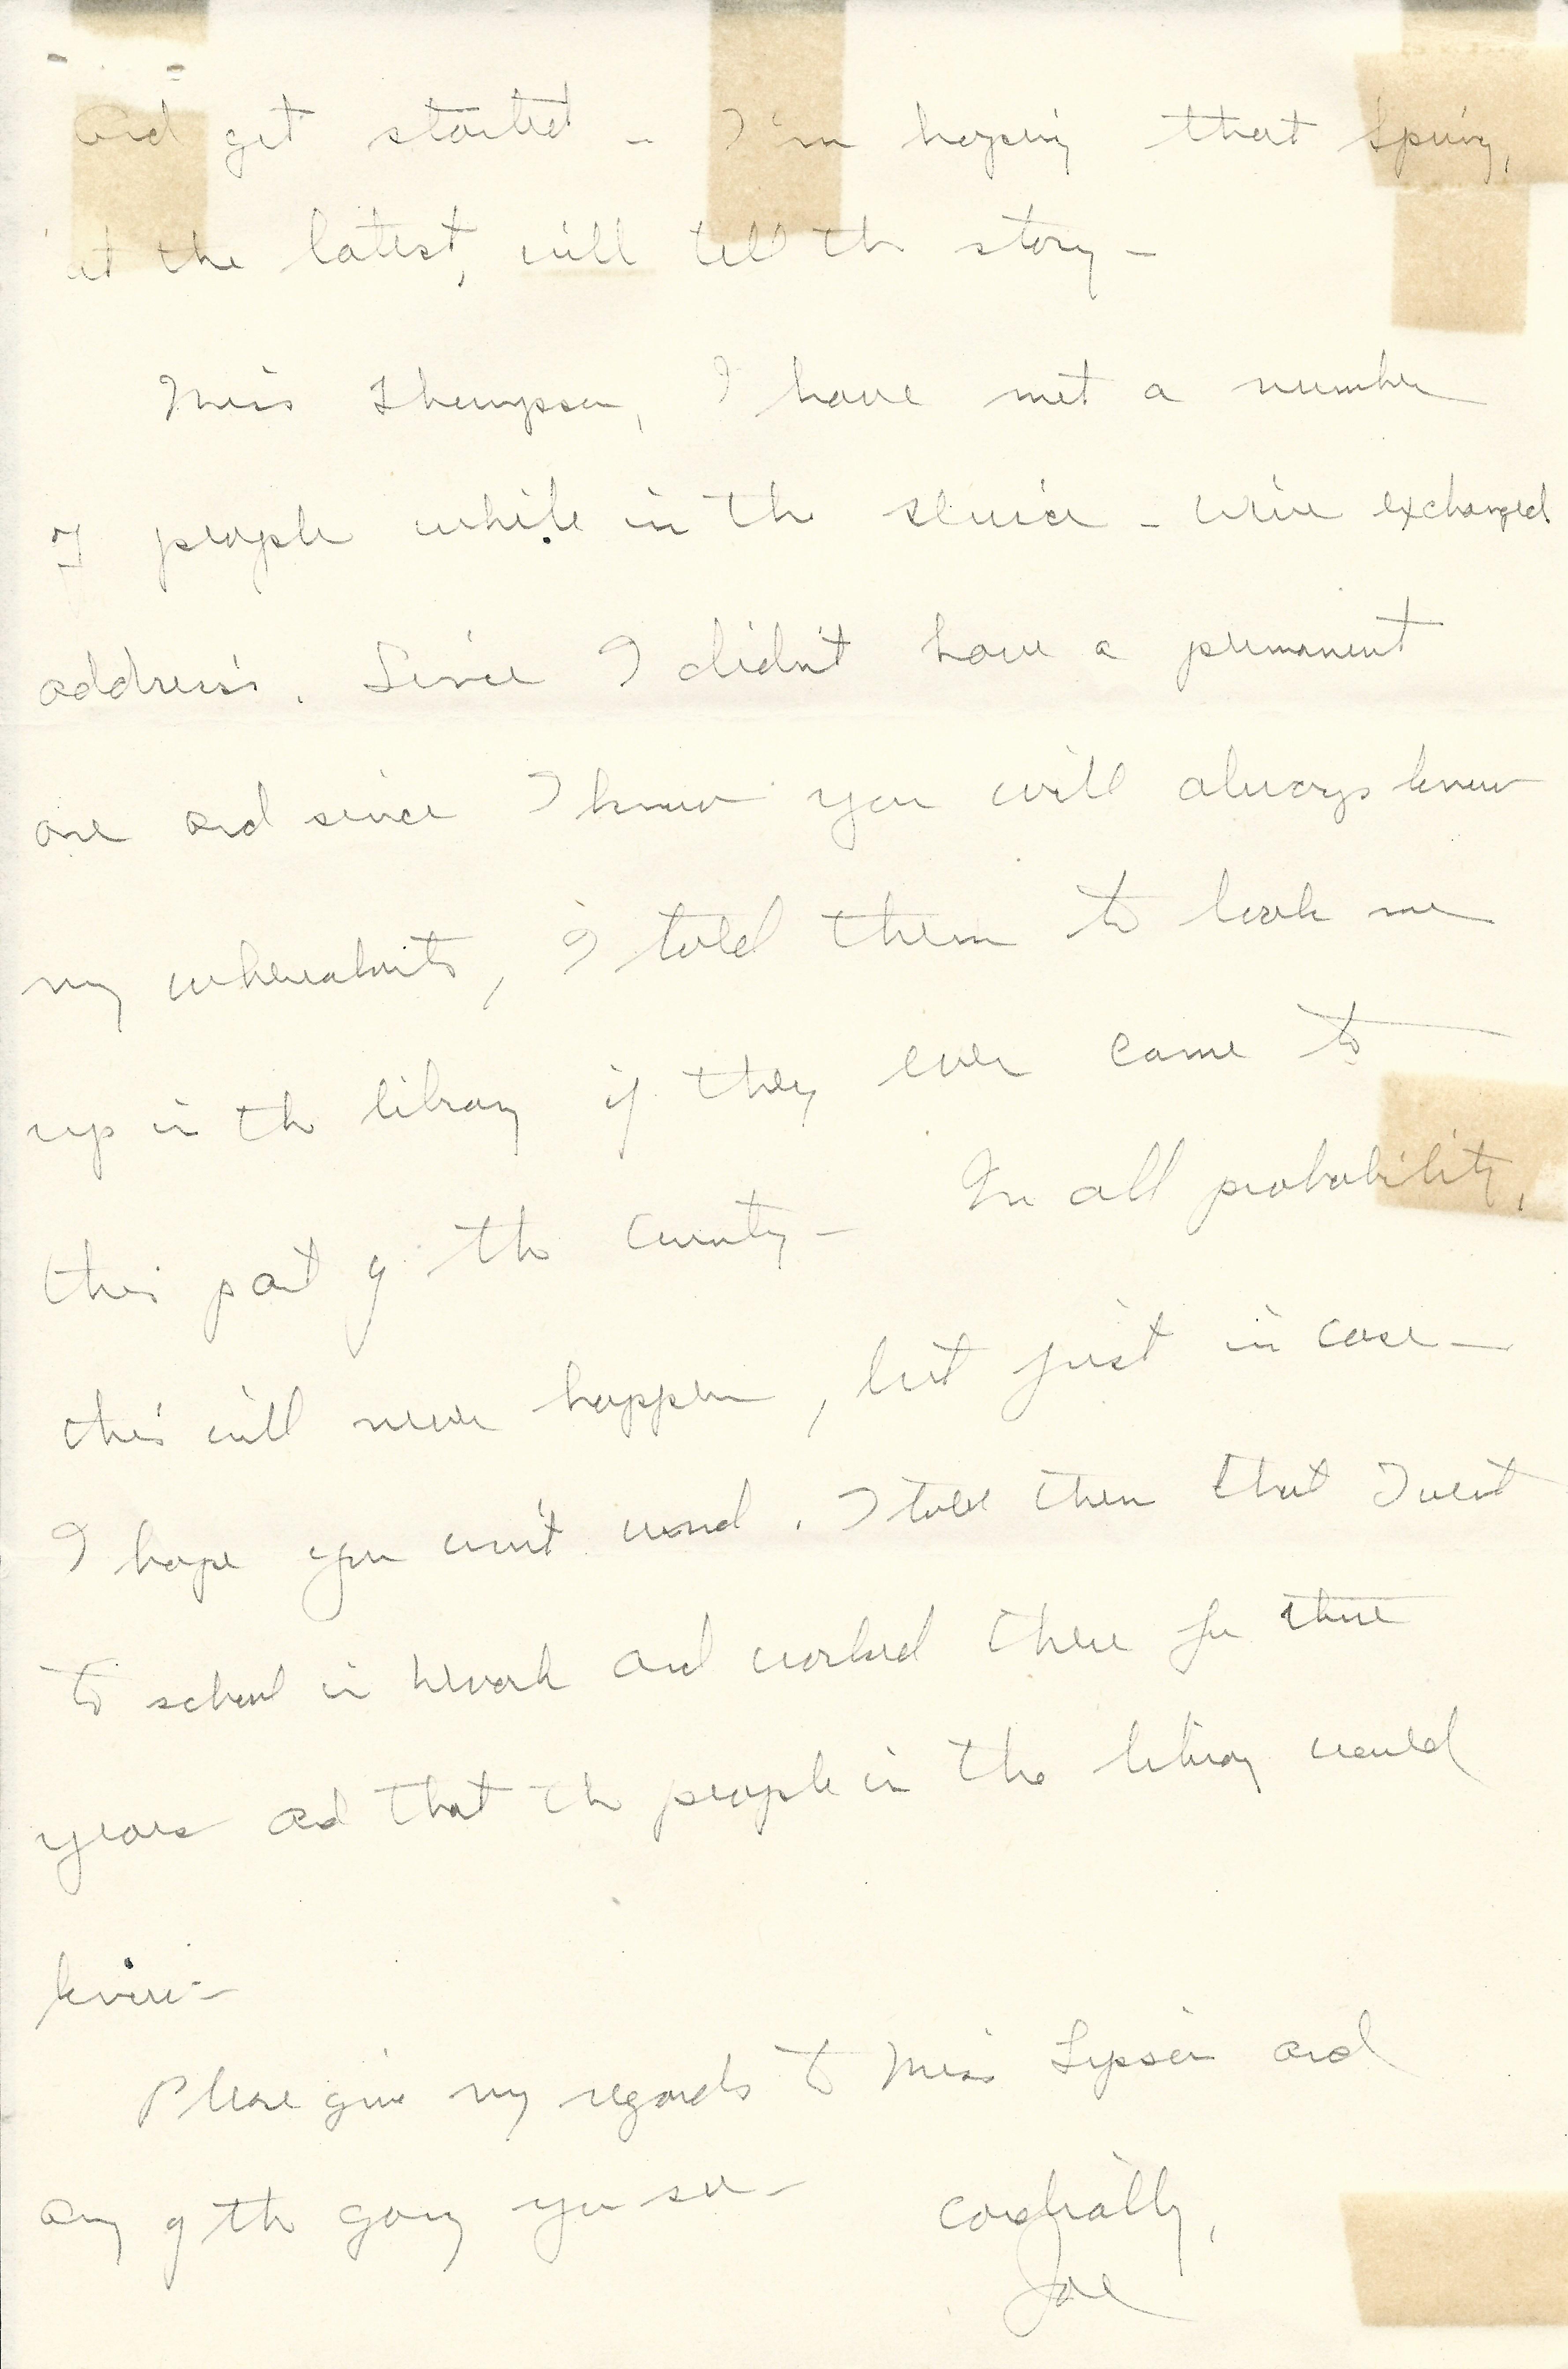 and get started - I'm hoping that Spring,
at the latest, will tell the story -
Miss Thompson, I have met a number
of people while in the service - we've exchanged
address. Since I didn't have a permanent
one and since I know you will always know
my whereabouts, I told them to look me
up in the library if they ever came to
this part of the country - In all probability,
this will never happen, but just in case -
I hope you won't mind. I told them that I went
to school in Newark and worked there for three
years and that the people in the library would
know -
Please give my regards to Miss and
any of the gang you see -
Cordially,
Joe